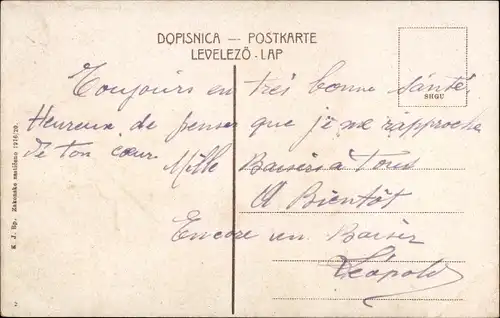 DOPISNICA — POSTKARTE
LEVELEZŐ-LAP
SHGU
Toujours en très bonne Santé.
Heureux de penser que je me rapproche
de ton cœur Mille Baisers à Tous
A Bientôt
Encore un Baiser
Léopold
K. J. Bp. Zakonsko zaštićeno 1916/20.
2